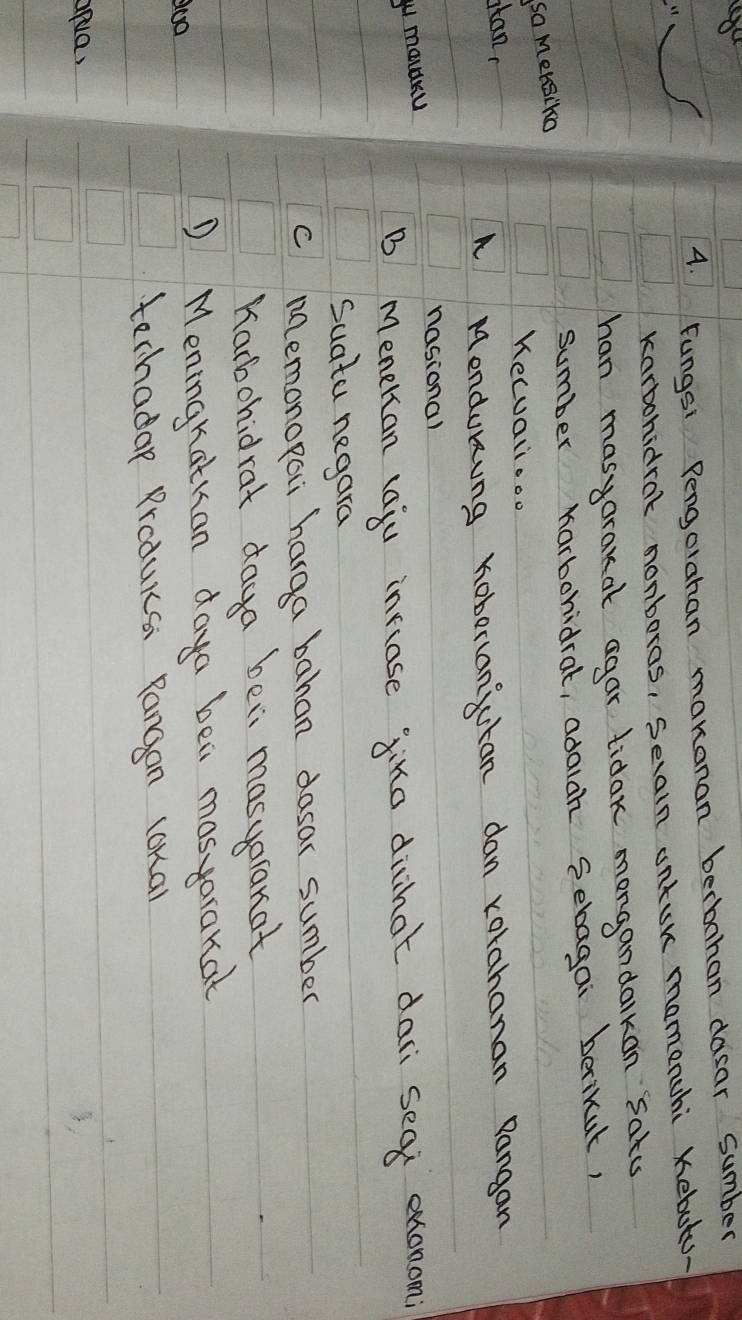 sa Meksiko
tan,
maluku
4. Fungsi Pengolahan makanan berbahan dasar sumber
karbohidrat nonberas, selain untuk memenuhi kebutu-
han masyarakat agar tidak mengandalkan satu
sumber karbohidrat, adalah sebagai berikut,
kecuali...
A Mendukung keberlanjutan dan ketahanan Pangan
nasional
B Menekan laju inflase jika dilihat dari segi ekonomi
suatu negara
C Memonopoli harga bahan dasar sumber
karbohidrat daya beli masyarakat
D Meningkatkan daya beli masyarakat
terhadap Produksi Pangan lokal